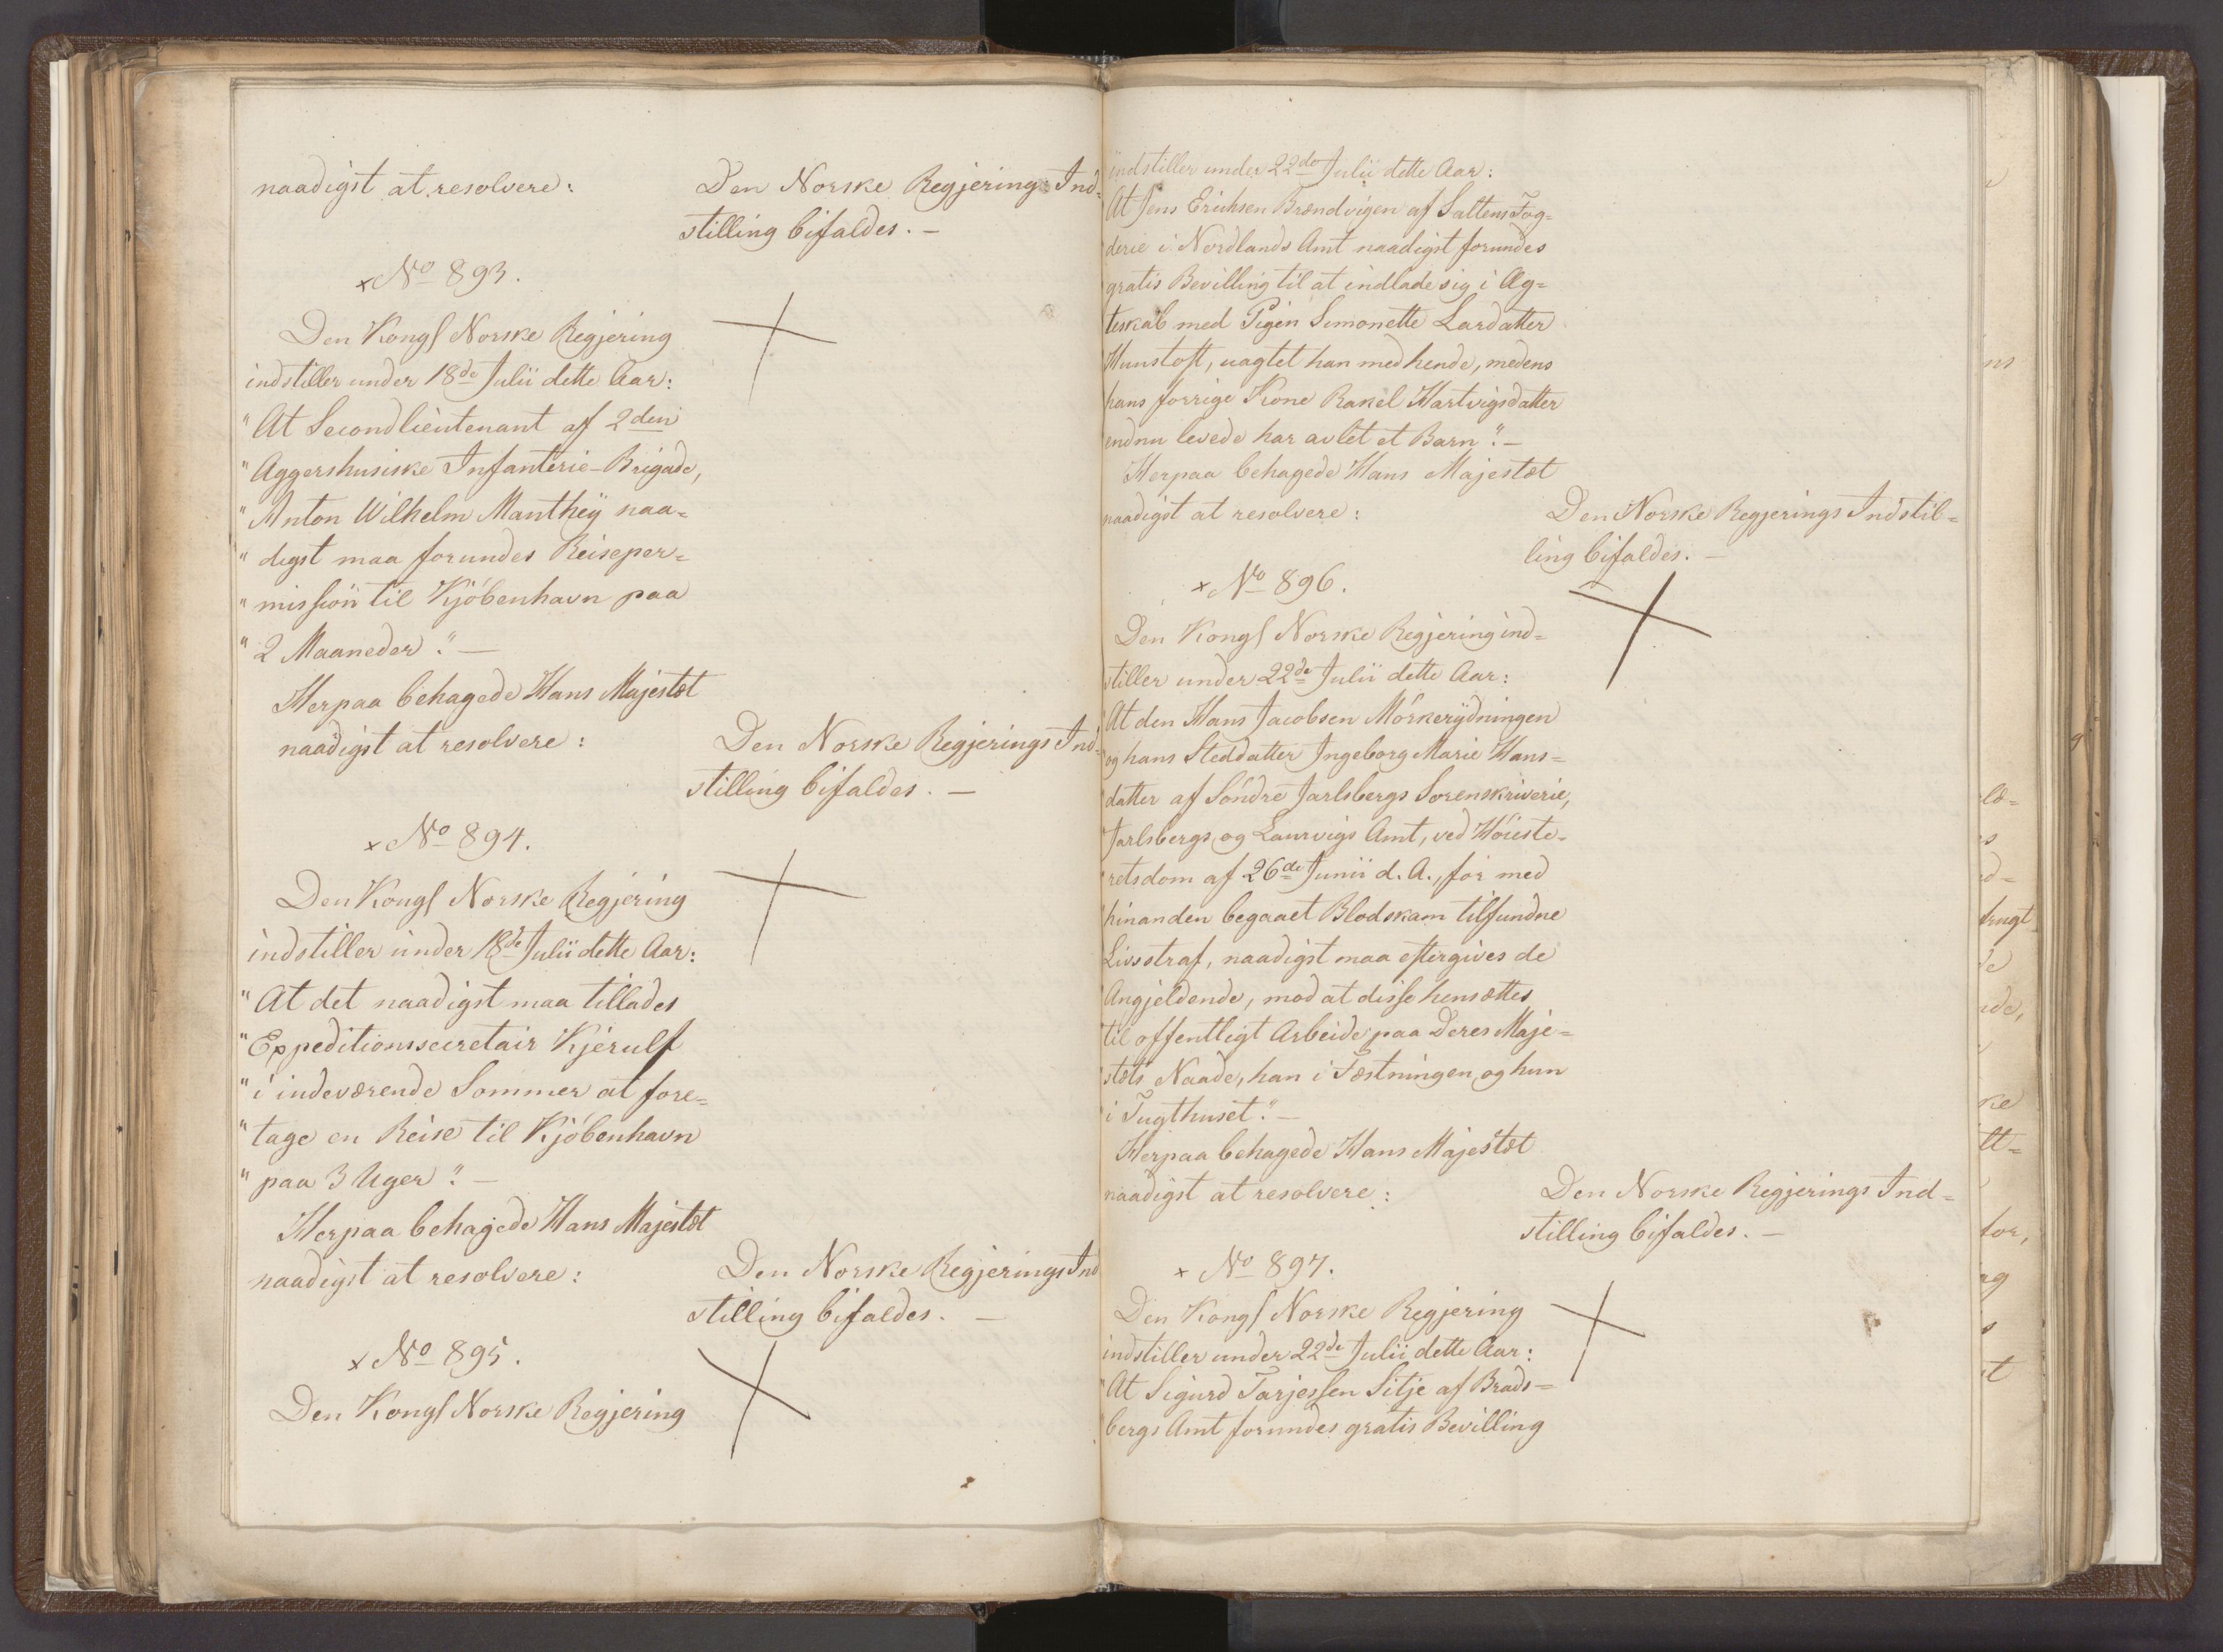 naadigst at resolvere:
Den Norske Regjerings Ind-
stilling bifaldes. -
x No 893.
Den Kongl Norske Regjering
indstiller under 18de Julii dette Aar:
"At Secondlieutenant af 2den
"Aggershusiske Infanterie-Brigade,
"Anton Wilhelm Manthey naa-
"digst maa forundes Reiseper-
"mission til Kjöbenhavn paa
"2 Maaneder". -
Herpaa behagede Hans Majestæt
naadigst at resolvere:
Den Norske Regjerings Ind-
stilling bifaldes. -
x No 894.
Den Kongl Norske Regjering
indstiller under 18de Julii dette Aar:
"At det naadigst maa tillades
"Expeditionssecretair Kjerulf
"i indeværende Sommer at fore-
"tage en Reise til Kjöbenhavn
"paa 3 Uger". -
Herpaa behagede Hans Majestæt
naadigst at resolvere:
Den Norske Regjerings Ind
stilling bifaldes. -
x No 895.
Den Kongl Norske Regjering
indstiller under 22de Julii dette Aar:
"At Jens Erichsen Brændvigen af Saltens Fog-
"derie i Nordlands Amt naadigst forundes
"gratis Bevilling til at indlade sig i Æg-
"teskab med Pigen Simonette Larsdatter
"Hunstoft, uagtet han med hende, medens
"hans forrige Kone Rakel Hartvigsdatter
"endnu levede har avlet et Barn". -
Herpaa behagede Hans Majestæt
naadigst at resolvere:
Den Norske Regjerings Indstil-
ling bifaldes. -
x No 896.
Den Kongl Norske Regjering ind-
stiller under 22de Julii dette Aar:
"At den Hans Jacobsen Mörkerydningen
"og hans Steddatter Ingeborg Marie Hans-
"datter af Söndre Jarlsbergs Sorenskriverie,
"Jarlsbergs og Laurvigs Amt, ved Höieste-
"retsdom af 26de Junii d. A., for med
"hinanden begaaet Blodskam tilfundne
"Livsstraf, naadigst maa eftergives de
"Angjeldende, mod at disse hensættes
"til offentligt Arbeide paa Deres Maje-
"stæts Naade, han i Fæstningen og hun
"i Tugthuset". -
Herpaa behagede Hans Majestæt
naadigst at resolvere:
Den Norske Regjerings Ind-
stilling bifaldes. -
x No 897.
Den Kongl Norske Regjering
indstiller under 22de Julii dette Aar:
"At Sigurd Tarjessen Sitje af Brads-
"bergs Amt forundes gratis Bevilling